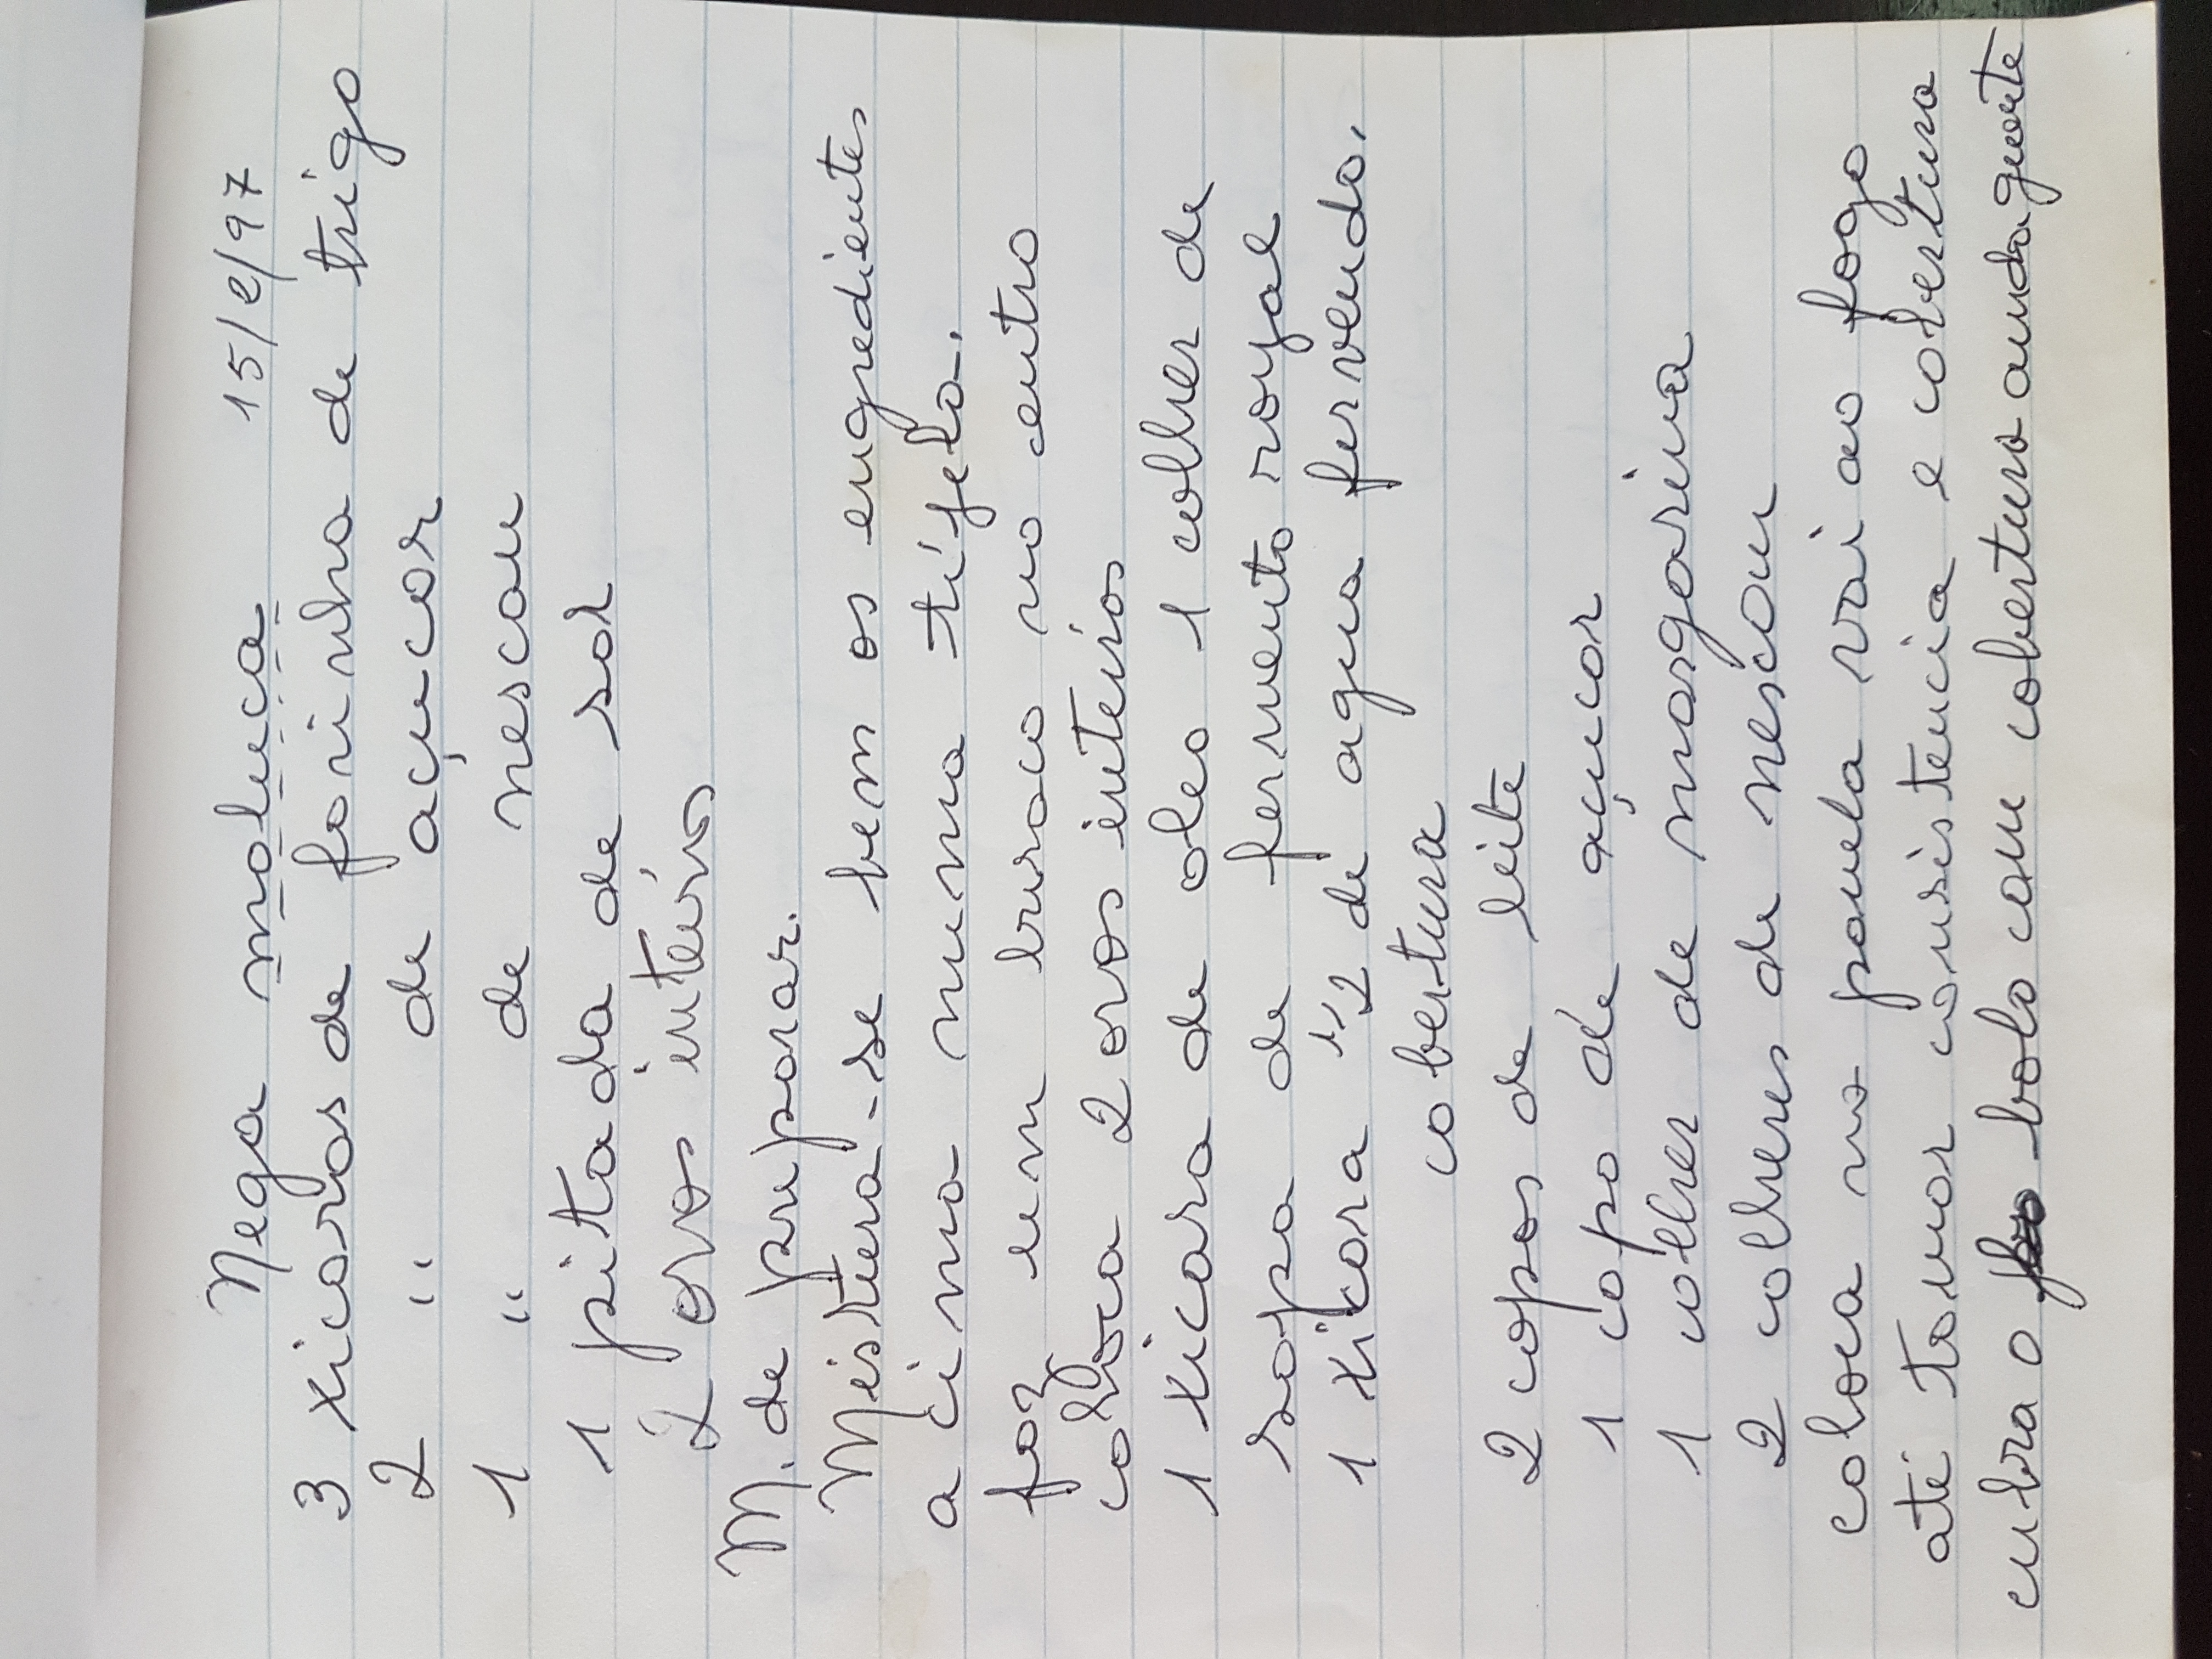 Nega maluca 15/2/97
3 xicaras de farinha de trigo
2 " de açucar
1 " de nescau
1 pitada de sal
2 ovos inteiros
M. de preparar.
Mistura-se bem os engredientes
a cima numa tíjela.
faz um buraco no centro
coloca 2 ovos inteiros
1 xicara de oleo 1 colher de
sopa de fermento royal
1 xicara 1/2 de agua fervendo.
cobertura
2 copos de leite
1 copo de açucar
1 colher de margarina
2 colheres de nescau
coloca na panela vai ao fogo
até tomar consistencia e cobertura
cubra o bolo com cobertura ainda